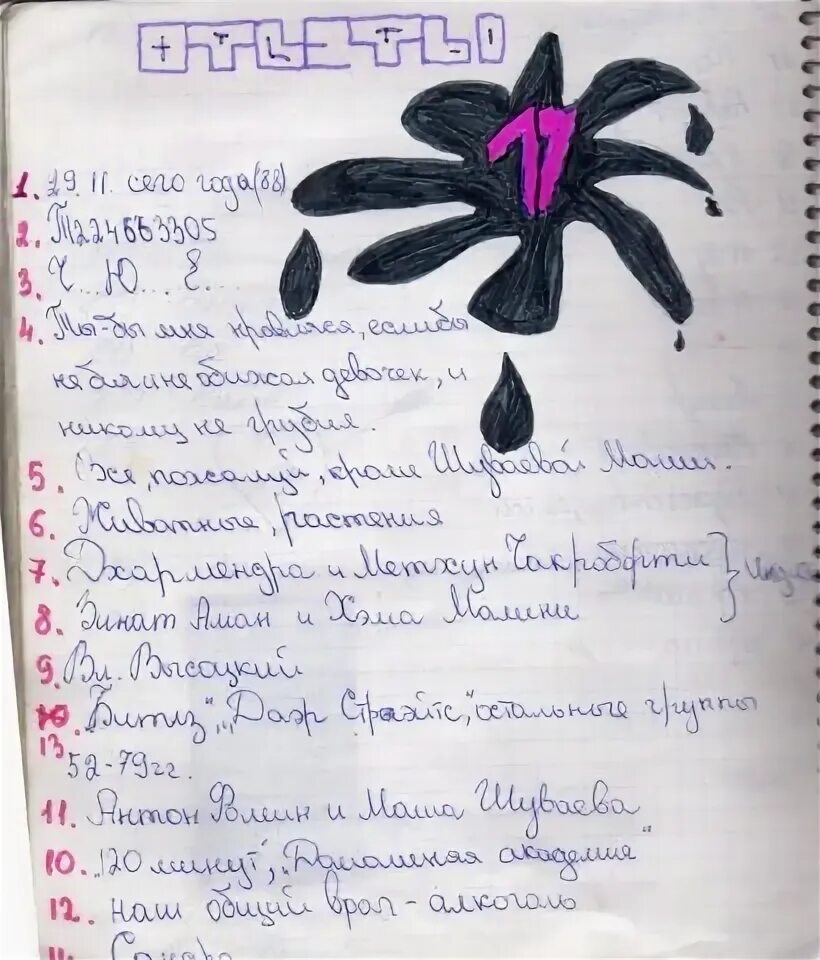 ОТВЕТЫ
17
1. 29.11. сего года (88)
2. Т224663305
3. Ч... Ю.... Е....
4. Ты-бы мне нравился, еслибы
не бил и не обижал девочек, и
никому не грубил.
5. Все, пожалуй, кроме Шуваевой Маши.
6. Животные, растения
7. Дхармендра и Метхун Чакроборти
8. Зинат Аман и Хэма Малини
9. Вл. Высоцкий
10. "Битлз", "Даэр Стрэйтс," остальные группы
13
52-79гг.
11. Антон и Маша Шуваева
10. "120 минут", "Домашняя академия"
12. наш общий враг - алкоголь